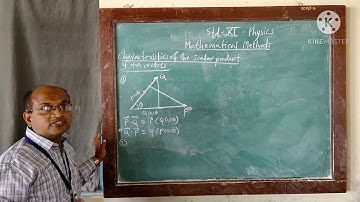 Std - XI - Physics
Mathematical Methods
Characteristics of the scalar product
of two vectors
①
Q
Q sinθ
θ
Q cosθ
P
P⃗ · Q⃗ = P (Q cosθ)
Q⃗ · P⃗ = Q (P cosθ)
②
KINEMASTER